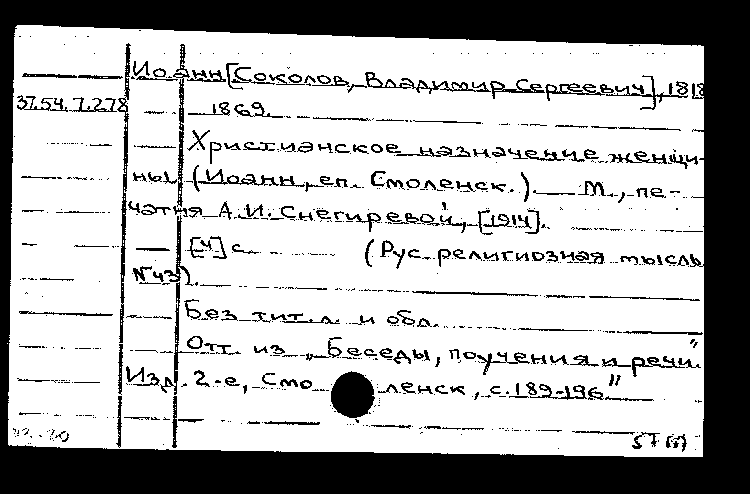 Иоанн [Соколов, Владимир Сергеевич], 1818
37.54.7.278
1869.
Христианское назначение женщи-
ны. (Иоанн, еп. Смоленск.). М., пе-
чатня А.И. Снегиревой, [1914].
[4] с. (Рус. религиозная мысль
№43).
Без тит. л. и обл.
Отт. из „Беседы, поучения и речи".
Изд. 2-е, Смоленск, с. 189-196"